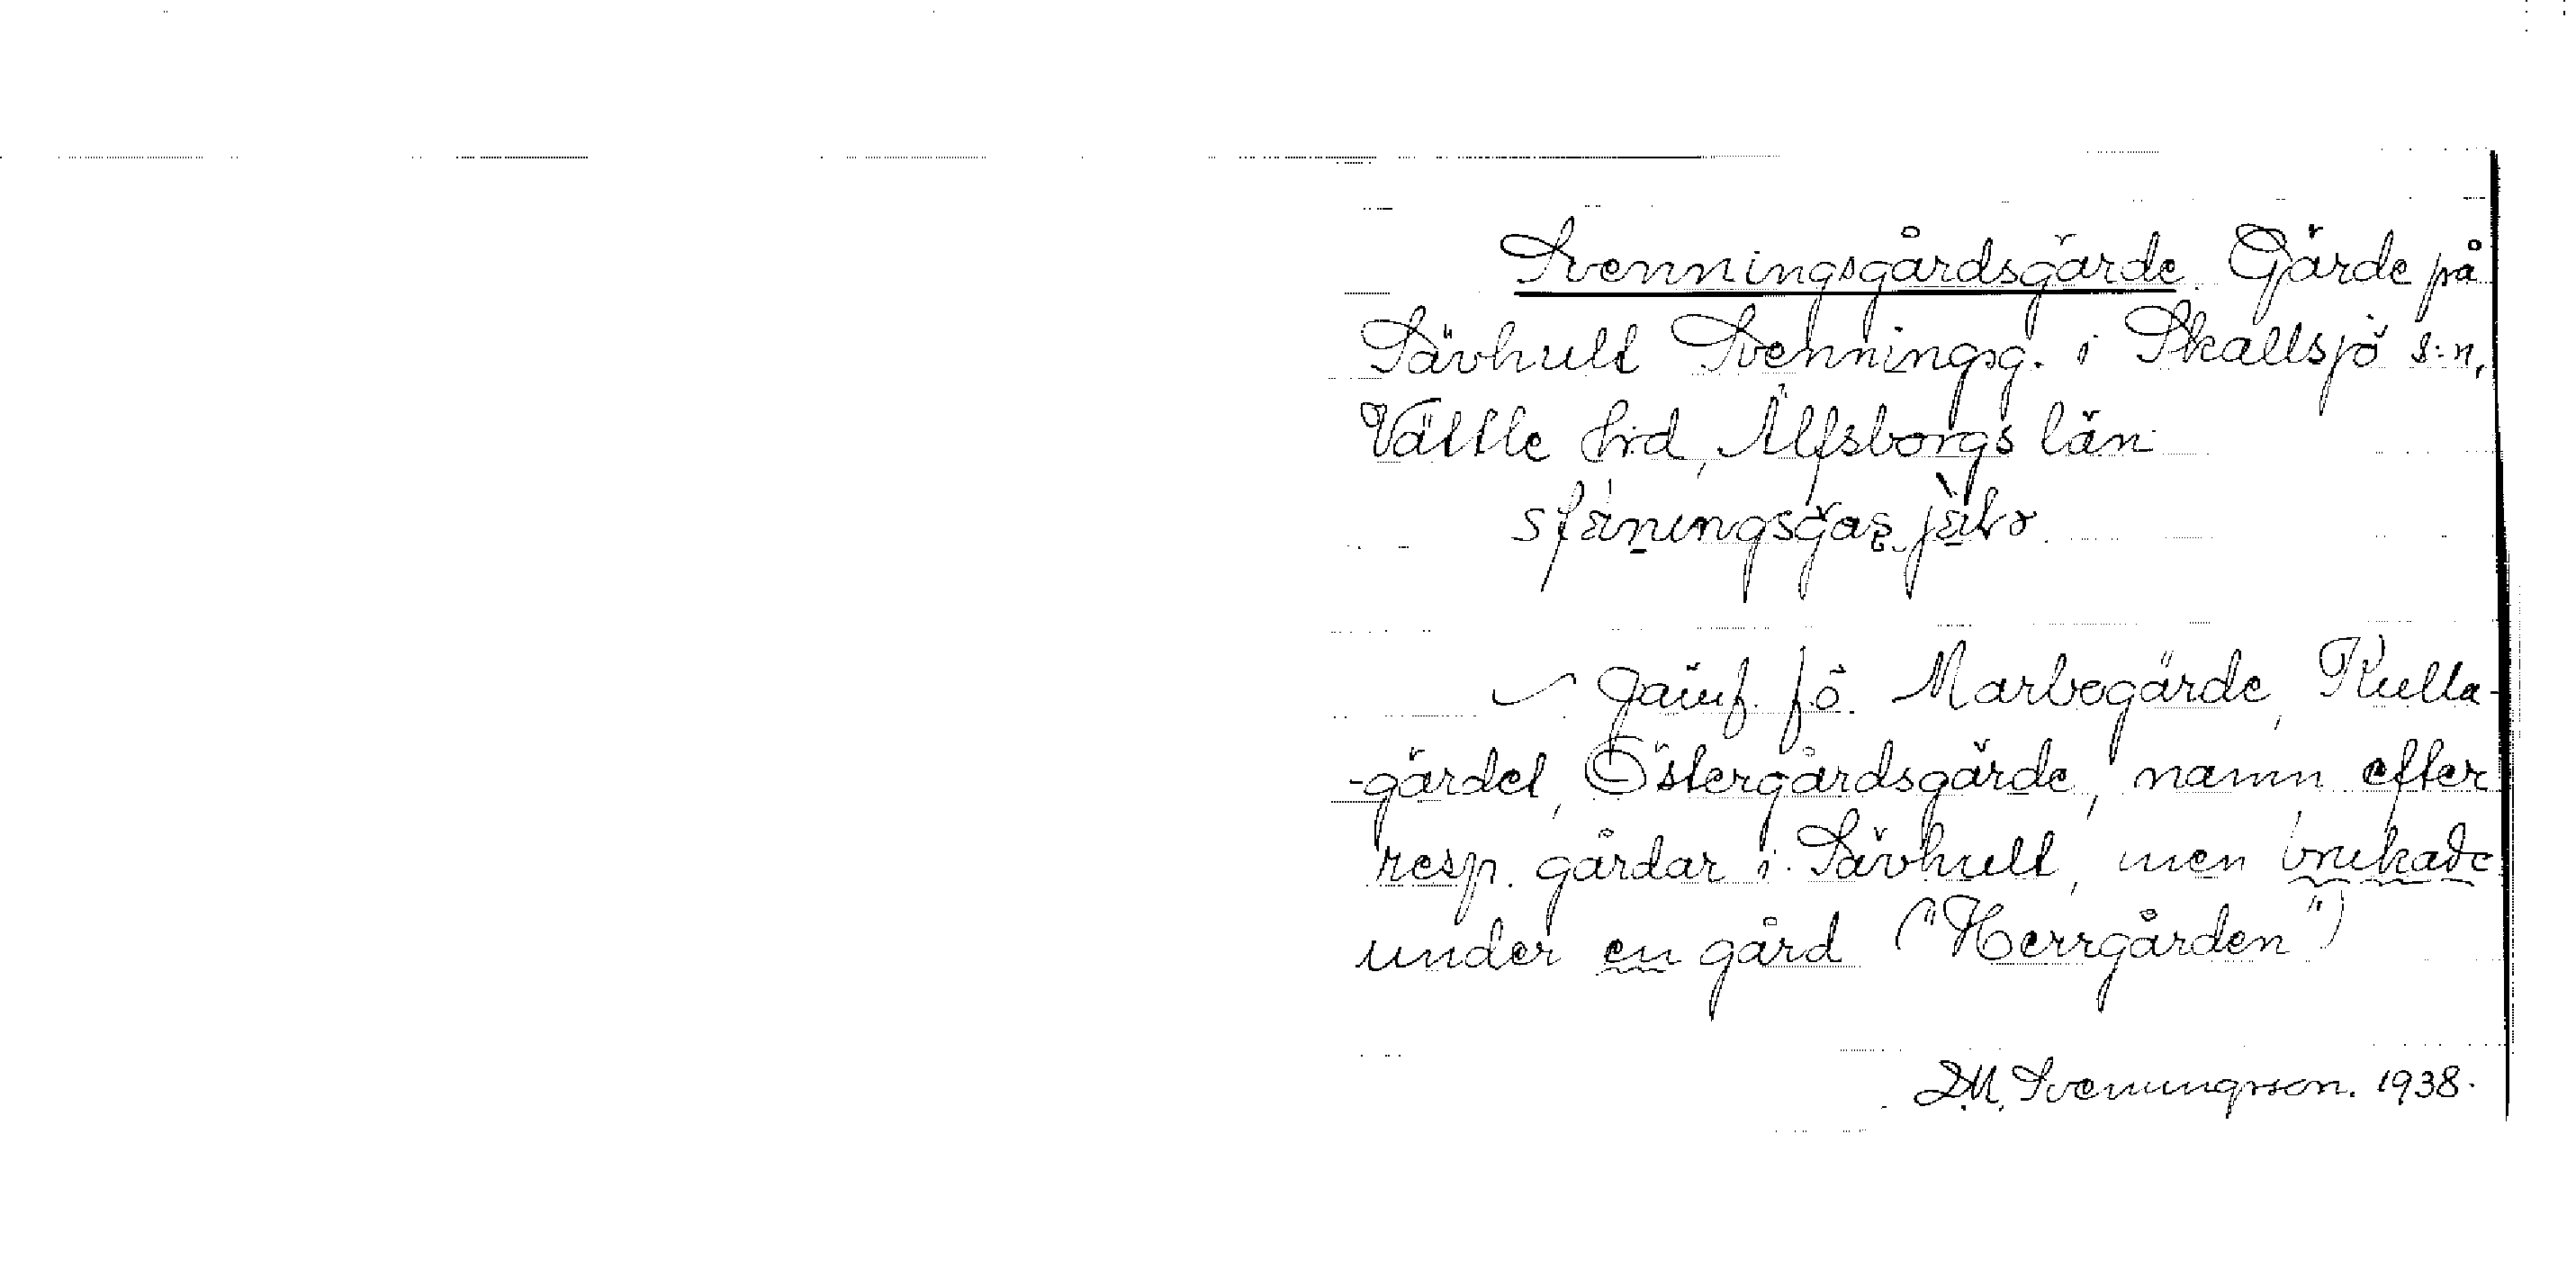 Svenningsgårdsgärde. Gärde på
Sävhult Svenningsg. i Skallsjö s:n,
Vättle hd, Älfsborgs län
Jämf. fö. Marbogärde, Kulla-
-gärdet, Östergårdsgärde, namn efter
resp. gårdar i Sävhult, men brukade
under en gård ("Herrgården")
D.M. Svenningsson. 1938.